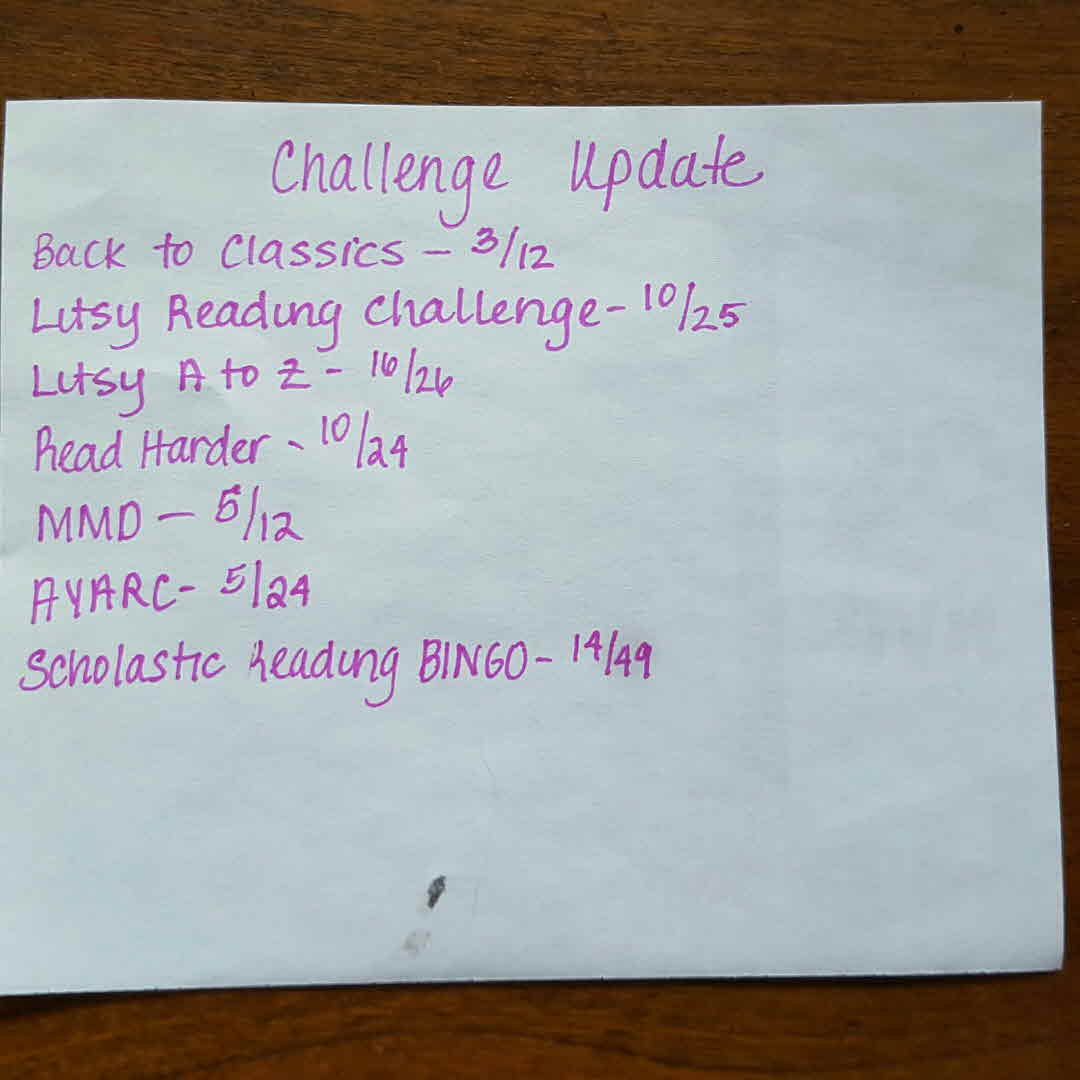 Challenge Update
Back to Classics - 3/12
Litsy Reading Challenge- 10/25
Litsy A to Z - 16/26
Read Harder - 10/24
MMD - 5/12
AYARC- 5/24
Scholastic Reading BINGO- 14/49